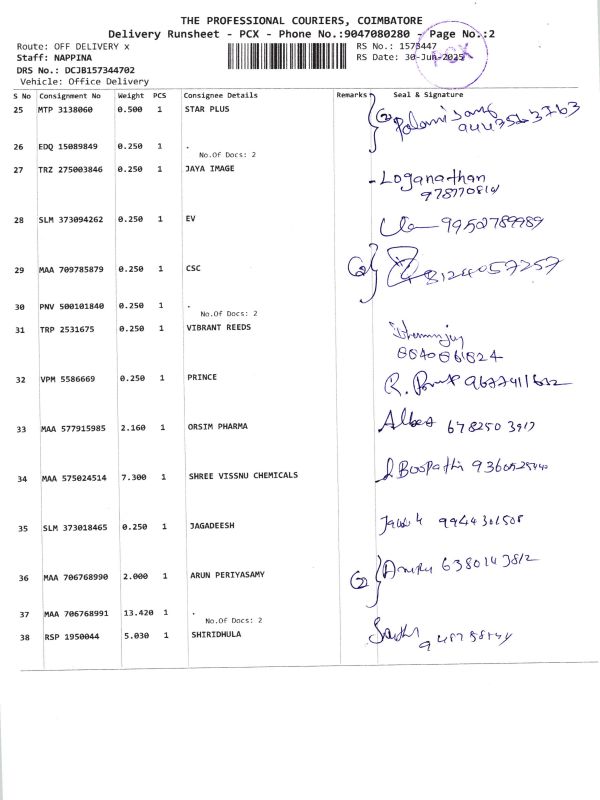 THE PROFESSIONAL COURIERS, COIMBATORE
Delivery Runsheet - PCX - Phone No.:9047080280 - Page No.:2
Route: OFF DELIVERY x
RS No.: 1573447
Staff: NAPPINA
RS Date: 30-Jun-2025
PCX
DRS No.: DCJB157344702
Vehicle: Office Delivery
S No Consignment No Weight PCS Consignee Details Remarks Seal & Signature
25 MTP 3138060 0.500 1 STAR PLUS
26 EDQ 15089849 0.250 1 .
No.Of Docs: 2
27 TRZ 275003846 0.250 1 JAYA IMAGE - Loganathan
978770814
28 SLM 373094262 0.250 1 EV 9952789989
29 MAA 709785879 0.250 1 CSC (2) 8124057257
30 PNV 500101840 0.250 1 .
No.Of Docs: 2
31 TRP 2531675 0.250 1 VIBRANT REEDS
32 VPM 5586669 0.250 1 PRINCE
33 MAA 577915985 2.160 1 ORSIM PHARMA
34 MAA 575024514 7.300 1 SHREE VISSNU CHEMICALS Boopathi
35 SLM 373018465 0.250 1 JAGADEESH 9944301508
36 MAA 706768990 2.000 1 ARUN PERIYASAMY (2) 6380143812
37 MAA 706768991 13.420 1 .
No.Of Docs: 2
38 RSP 1950044 5.030 1 SHIRIDHULA